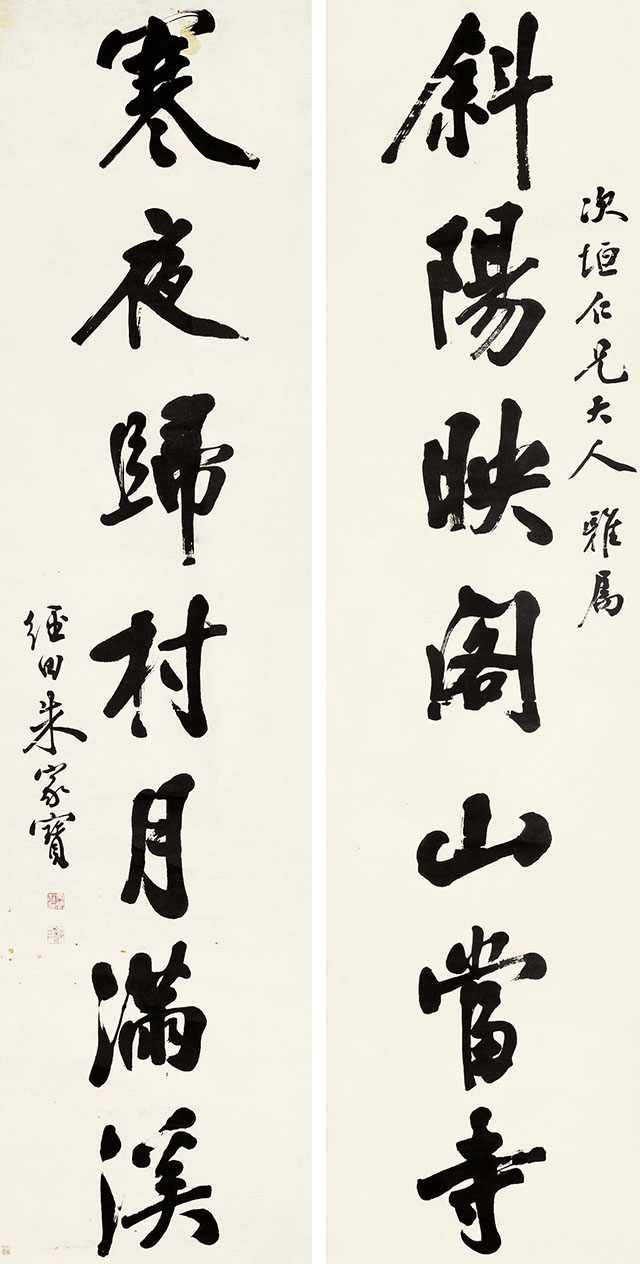 次垣仁兄大人雅属
斜陽映阁山當寺
寒夜歸村月滿溪
经田朱家寶